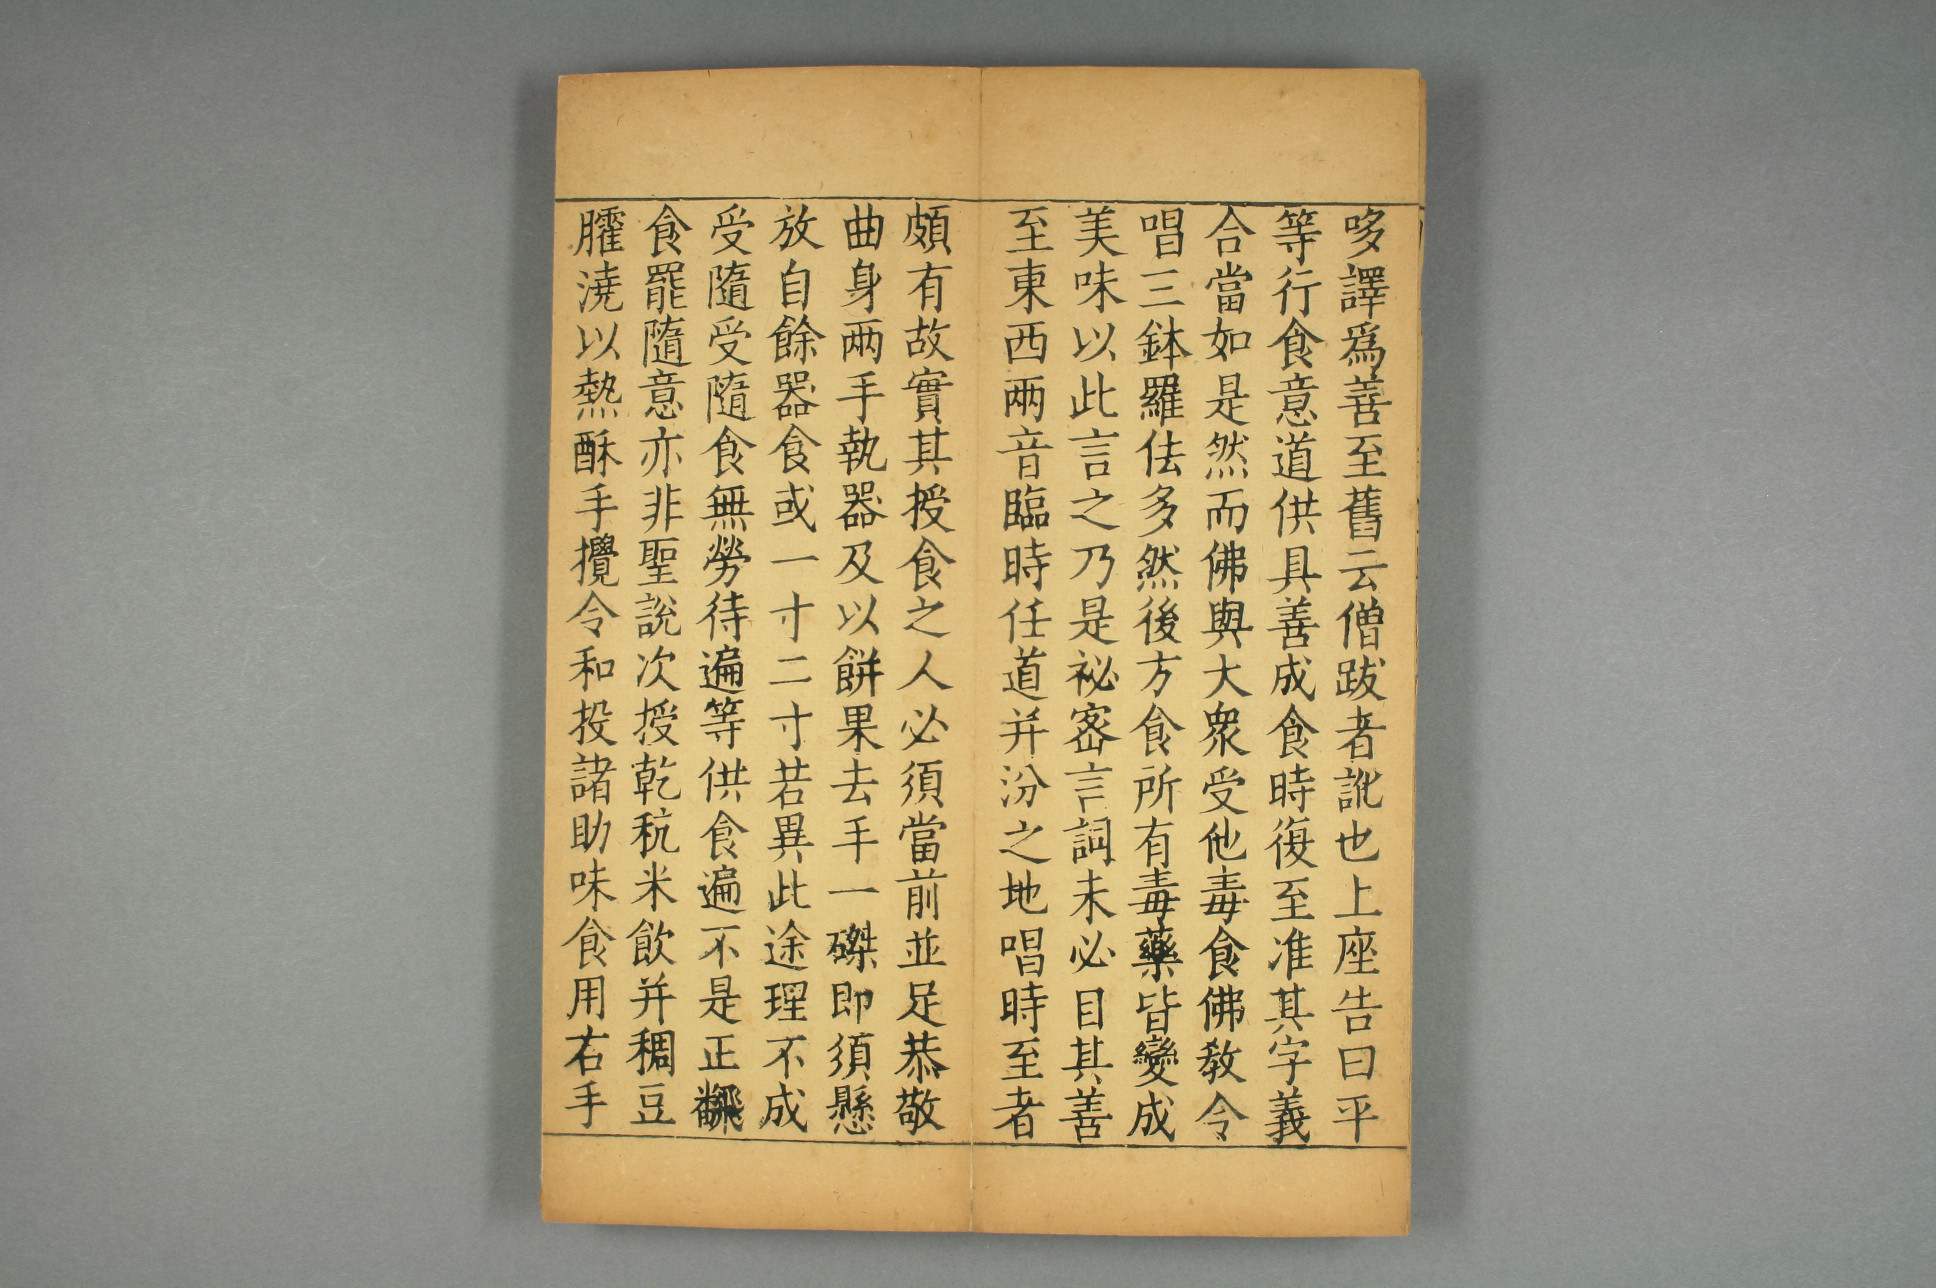 哆譯爲善至舊云僧跋者訛也上座告曰平
等行食意道供具善成食時復至准其字義
合當如是然而佛與大衆受他毒食佛教令
唱三鉢羅佉多然後方食所有毒藥皆變成
美味以此言之乃是祕密言詞未必目其善
至東西兩音臨時任道并汾之地唱時至者
頗有故實其授食之人必須當前並足恭敬
曲身兩手執器及以餅果去手一磔即須懸
放自餘器食或一寸二寸若異此途理不成
受隨受隨食無勞待遍等供食遍不是正飜
食罷隨意亦非聖說次授乾秔米飲并稠豆
臛澆以熱酥手攪令和投諸助味食用右手